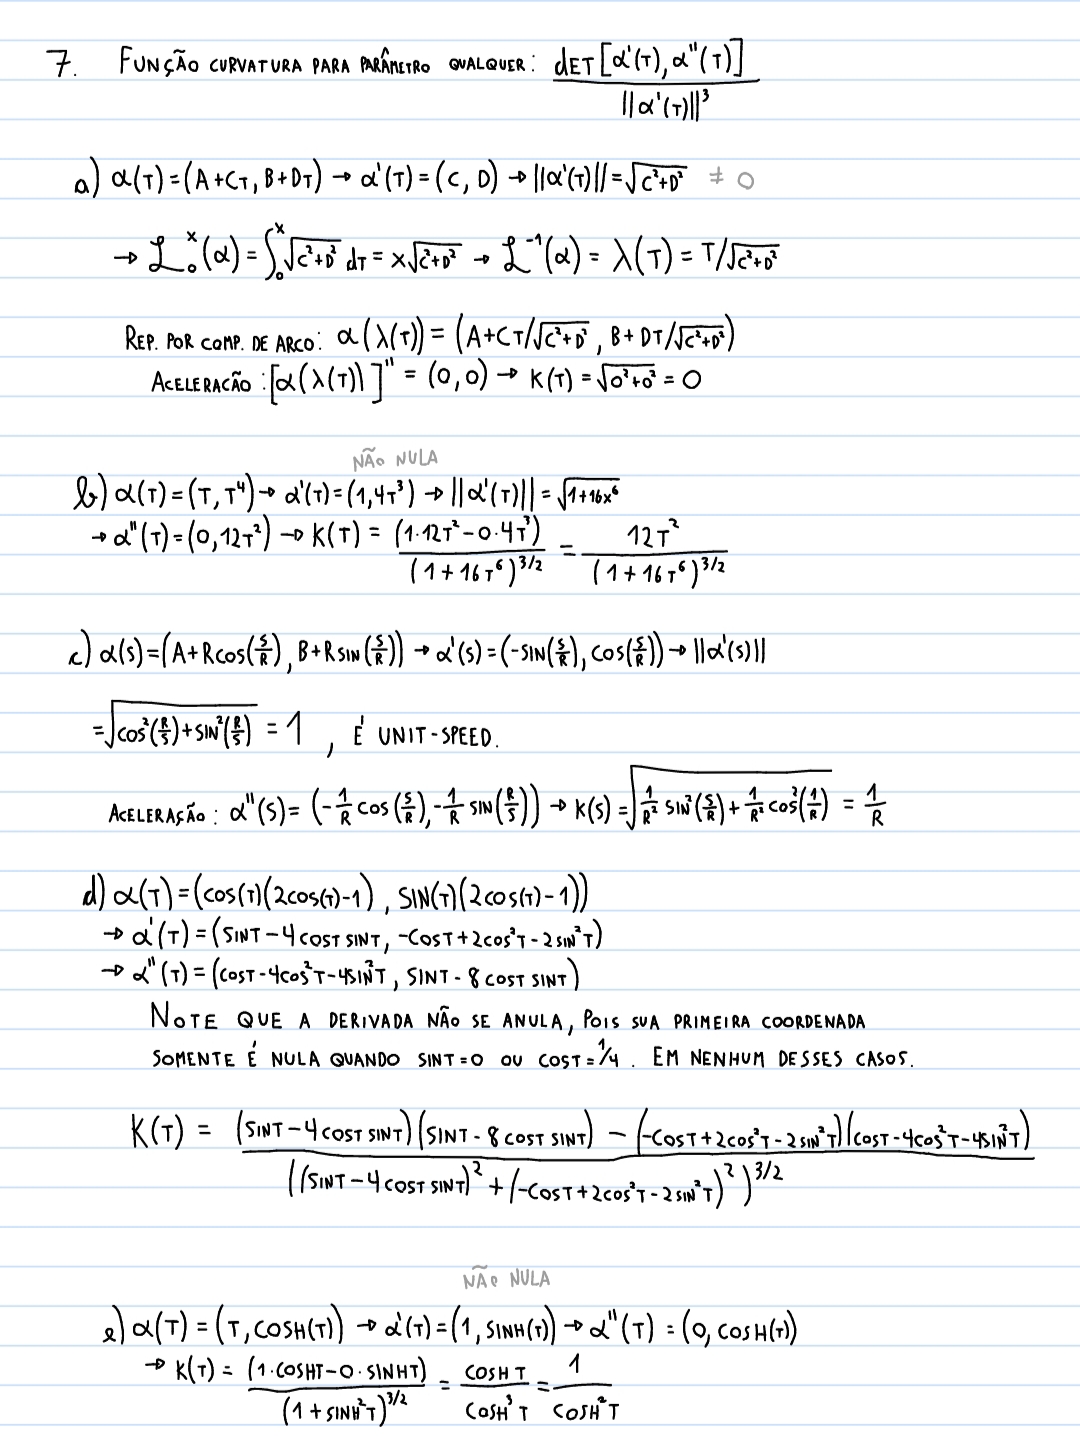 7. FUNÇÃO CURVATURA PARA PARÂMETRO QUALQUER: DET[α'(T), α''(T)] / ||α'(T)||³
a) α(T)=(A+CT, B+DT) → α'(T)=(C, D) → ||α'(T)||=√(C²+D²) ≠ 0
→ ℒ₀ˣ(α)=∫₀ˣ√(C²+D²) dT = x√(C²+D²) → ℒ⁻¹(α) = λ(T) = T/√(C²+D²)
REP. POR COMP. DE ARCO: α(λ(T)) = (A+CT/√(C²+D²), B+DT/√(C²+D²))
ACELERACÃO: [α(λ(T))]'' = (0,0) → K(T)=√(0²+0²)=0
NÃO NULA
b) α(T)=(T,T⁴) → α'(T)=(1,4T³) → ||α'(T)||=√(1+16x⁶)
→ α''(T)=(0,12T²) → K(T) = (1·12T²-0·4T³) / (1+16T⁶)^(3/2) = 12T² / (1+16T⁶)^(3/2)
c) α(s)=(A+Rcos(S/R), B+RSIN(S/R)) → α'(s)=(-SIN(S/R), cos(S/R)) → ||α'(s)||
=√(cos²(R/S)+SIN²(R/S)) = 1, É UNIT-SPEED.
ACELERAÇÃO: α''(S)= (-1/R cos(S/R), -1/R SIN(R/S)) → K(s) =√(1/R² SIN²(S/R)+1/R² cos²(1/R)) = 1/R
d) α(T)=(cos(T)(2cos(T)-1), SIN(T)(2cos(T)-1))
→ α'(T)=(SINT-4COST SINT, -COST+2cos²T-2SIN²T)
→ α''(T)=(COST-4cos²T-4SIN²T, SINT-8COST SINT)
NOTE QUE A DERIVADA NÃO SE ANULA, POIS SUA PRIMEIRA COORDENADA
SOMENTE É NULA QUANDO SINT=0 OU COST=1/4. EM NENHUM DESSES CASOS.
K(T) = (SINT-4COST SINT)(SINT-8COST SINT) - (-COST+2cos²T-2SIN²T)(COST-4cos²T-4SIN²T) / ((SINT-4COST SINT)²+(-COST+2cos²T-2SIN²T)²)^(3/2)
NÃO NULA
e) α(T)=(T,COSH(T)) → α'(T)=(1,SINH(T)) → α''(T)=(0,COSH(T))
→ K(T) = (1·COSHT-0·SINHT) / (1+SINH²T)^(3/2) = COSH T / COSH³ T = 1 / COSH² T